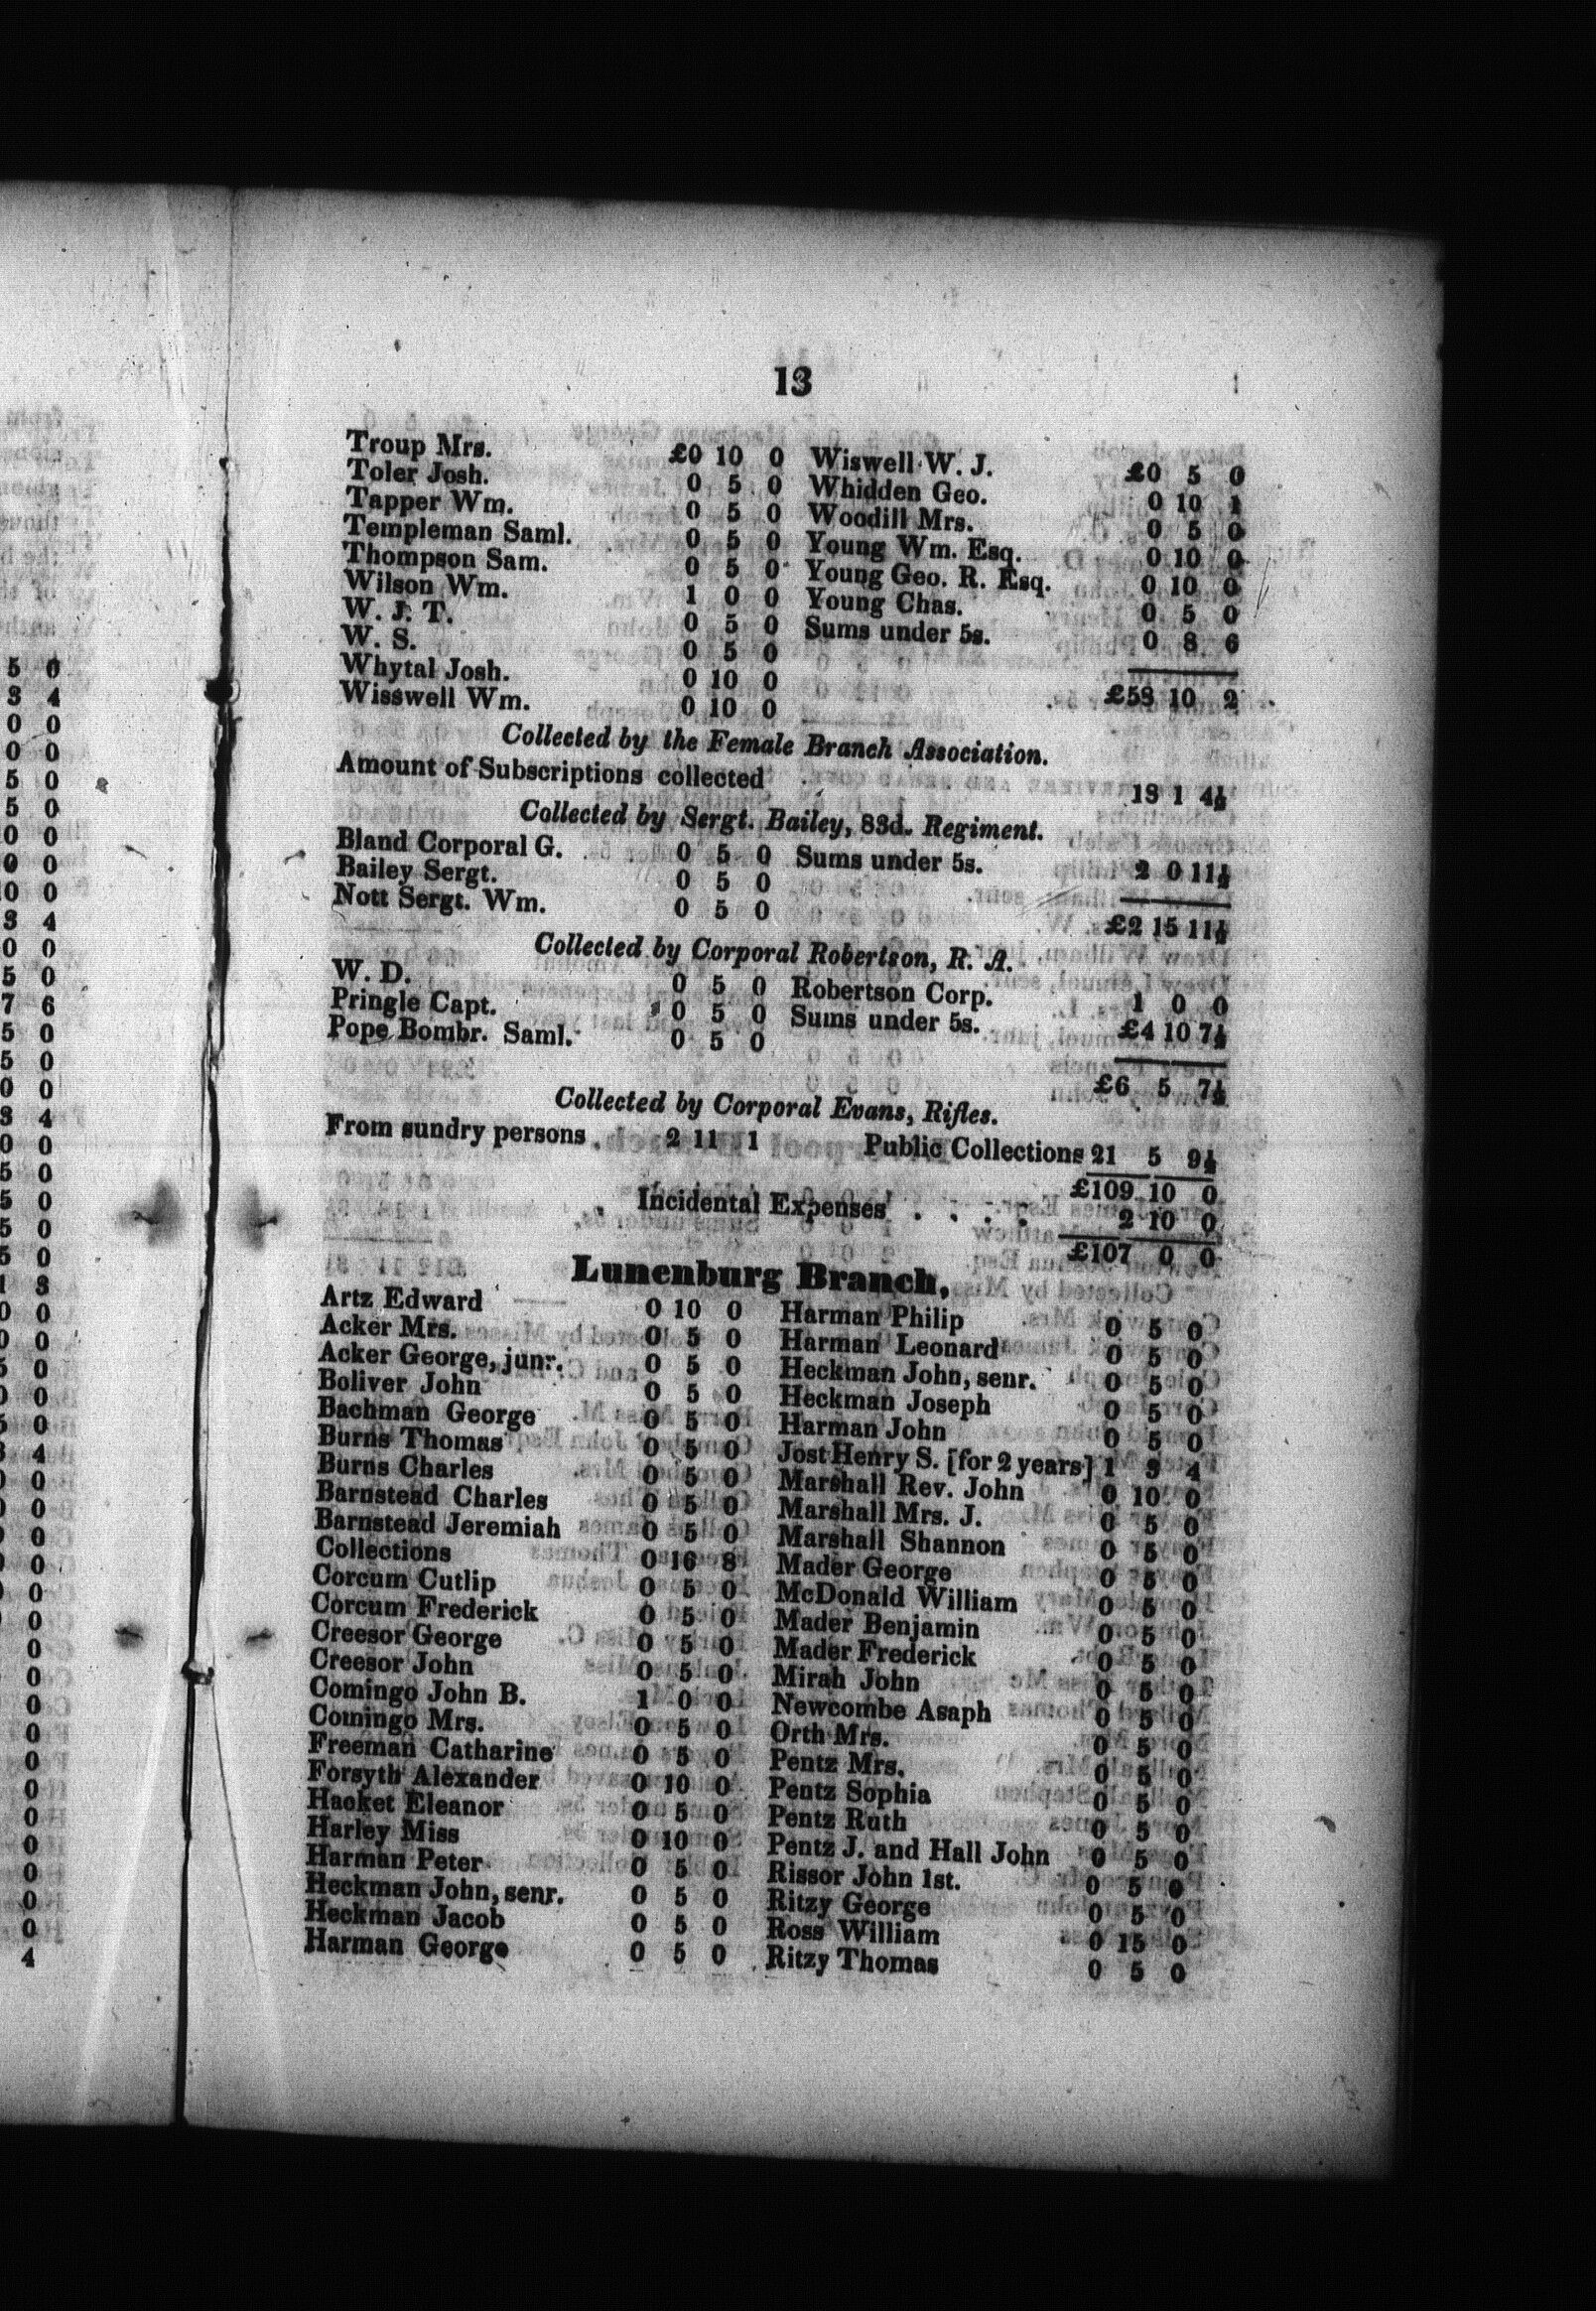 13
Troup Mrs. £0 10 0
Toler Josh. 0 5 0
Tapper Wm. 0 5 0
Templeman Saml. 0 5 0
Thompson Sam. 0 5 0
Wilson Wm. 1 0 0
W. J. T. 0 5 0
W. S. 0 5 0
Whytal Josh. 0 10 0
Wisswell Wm. 0 10 0
Wiswell W. J. £0 5 0
Whidden Geo. 0 10 1
Woodill Mrs. 0 5 0
Young Wm. Esq. 0 10 0
Young Geo. R. Esq. 0 10 0
Young Chas. 0 5 0
Sums under 5s. 0 8 6
£53 10 2
Collected by the Female Branch Association.
Amount of Subscriptions collected 13 1 4½
Collected by Sergt. Bailey, 83d. Regiment.
Bland Corporal G. 0 5 0
Bailey Sergt. 0 5 0
Nott Sergt. Wm. 0 5 0
Sums under 5s. 2 0 11½
£2 15 11½
Collected by Corporal Robertson, R. A.
W. D. 0 5 0
Pringle Capt. 0 5 0
Pope Bombr. Saml. 0 5 0
Robertson Corp. 1 0 0
Sums under 5s. £4 10 7½
£6 5 7½
Collected by Corporal Evans, Rifles.
From sundry persons 2 11 1 Public Collections 21 5 9½
£109 10 0
Incidental Expenses . . . . 2 10 0
£107 0 0
Lunenburg Branch.
Artz Edward 0 10 0
Acker Mrs. 0 5 0
Acker George, junr. 0 5 0
Boliver John 0 5 0
Bachman George 0 5 0
Burns Thomas 0 5 0
Burns Charles 0 5 0
Barnstead Charles 0 5 0
Barnstead Jeremiah 0 5 0
Collections 0 16 8
Corcum Cutlip 0 5 0
Corcum Frederick 0 5 0
Creesor George 0 5 0
Creesor John 0 5 0
Comingo John B. 1 0 0
Comingo Mrs. 0 5 0
Freeman Catharine 0 5 0
Forsyth Alexander 0 10 0
Hacket Eleanor 0 5 0
Harley Miss 0 10 0
Harman Peter 0 5 0
Heckman John, senr. 0 5 0
Heckman Jacob 0 5 0
Harman George 0 5 0
Harman Philip 0 5 0
Harman Leonard 0 5 0
Heckman John, senr. 0 5 0
Heckman Joseph 0 5 0
Harman John 0 5 0
Jost Henry S. [for 2 years] 1 3 4
Marshall Rev. John 0 10 0
Marshall Mrs. J. 0 5 0
Marshall Shannon 0 5 0
Mader George 0 5 0
McDonald William 0 5 0
Mader Benjamin 0 5 0
Mader Frederick 0 5 0
Mirah John 0 5 0
Newcombe Asaph 0 5 0
Orth Mrs. 0 5 0
Pentz Mrs. 0 5 0
Pentz Sophia 0 5 0
Pentz Ruth 0 5 0
Pentz J. and Hall John 0 5 0
Rissor John 1st. 0 5 0
Ritzy George 0 5 0
Ross William 0 15 0
Ritzy Thomas 0 5 0